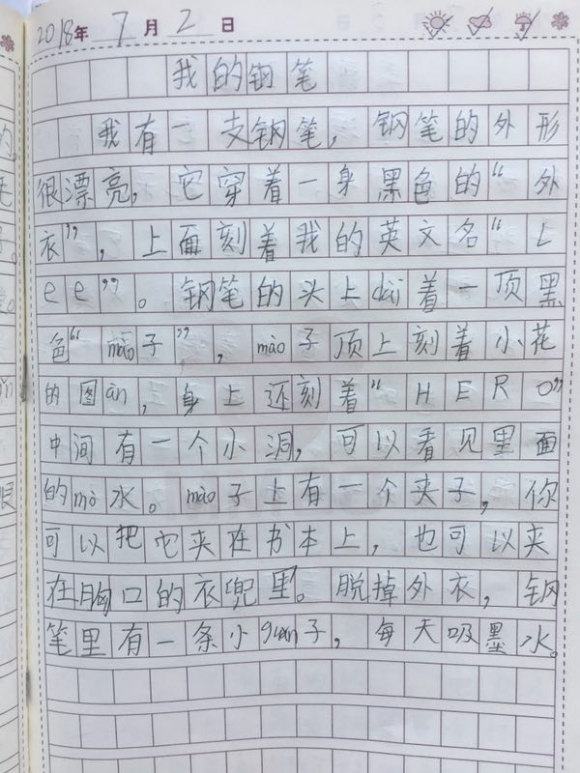 2018年7月2日
我的钢笔
我有一支钢笔，钢笔的外形
很漂亮，它穿着一身黑色的“外
衣”，上面刻着我的英文名“L
ee”。钢笔的头上dài着一顶黑
色“mào子”，mào子顶上刻着小花
的图àn，身上还刻着“HERO”
中间有一个小洞，可以看见里面
的mò水。mào子上有一个夹子，你
可以把它夹在书本上，也可以夹
在胸口的衣兜里。脱掉外衣，钢
笔里有一条小guǎn子，每天吸墨水。